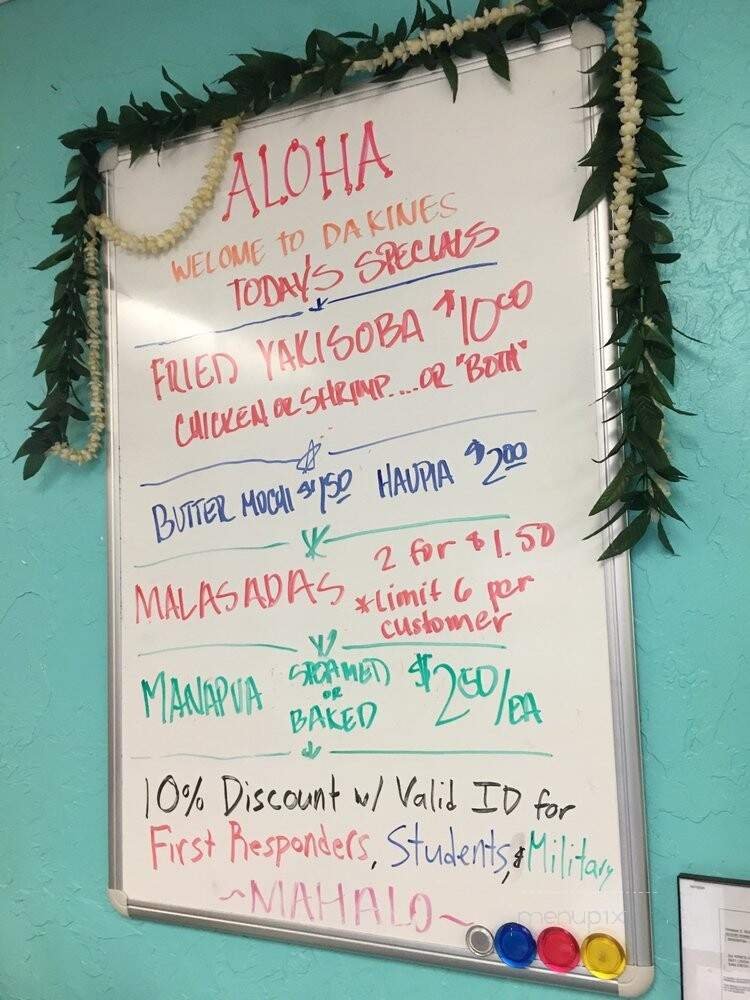 ALOHA
WELOME to DA KINES
TODAY'S SPECIALS
FRIED YAKISOBA $10.00
CHICKEN OR SHRIMP....OR "BOTH"
BUTTER MOCHI $1.50 HAUPIA $2.00
MALASADAS 2 for $1.50
*Limit 6 per
customer
MANAPUA STEAMED or BAKED $2.50/EA
10% Discount w/ Valid ID for
First Responders, Students, & Military
~MAHALO~
menupix